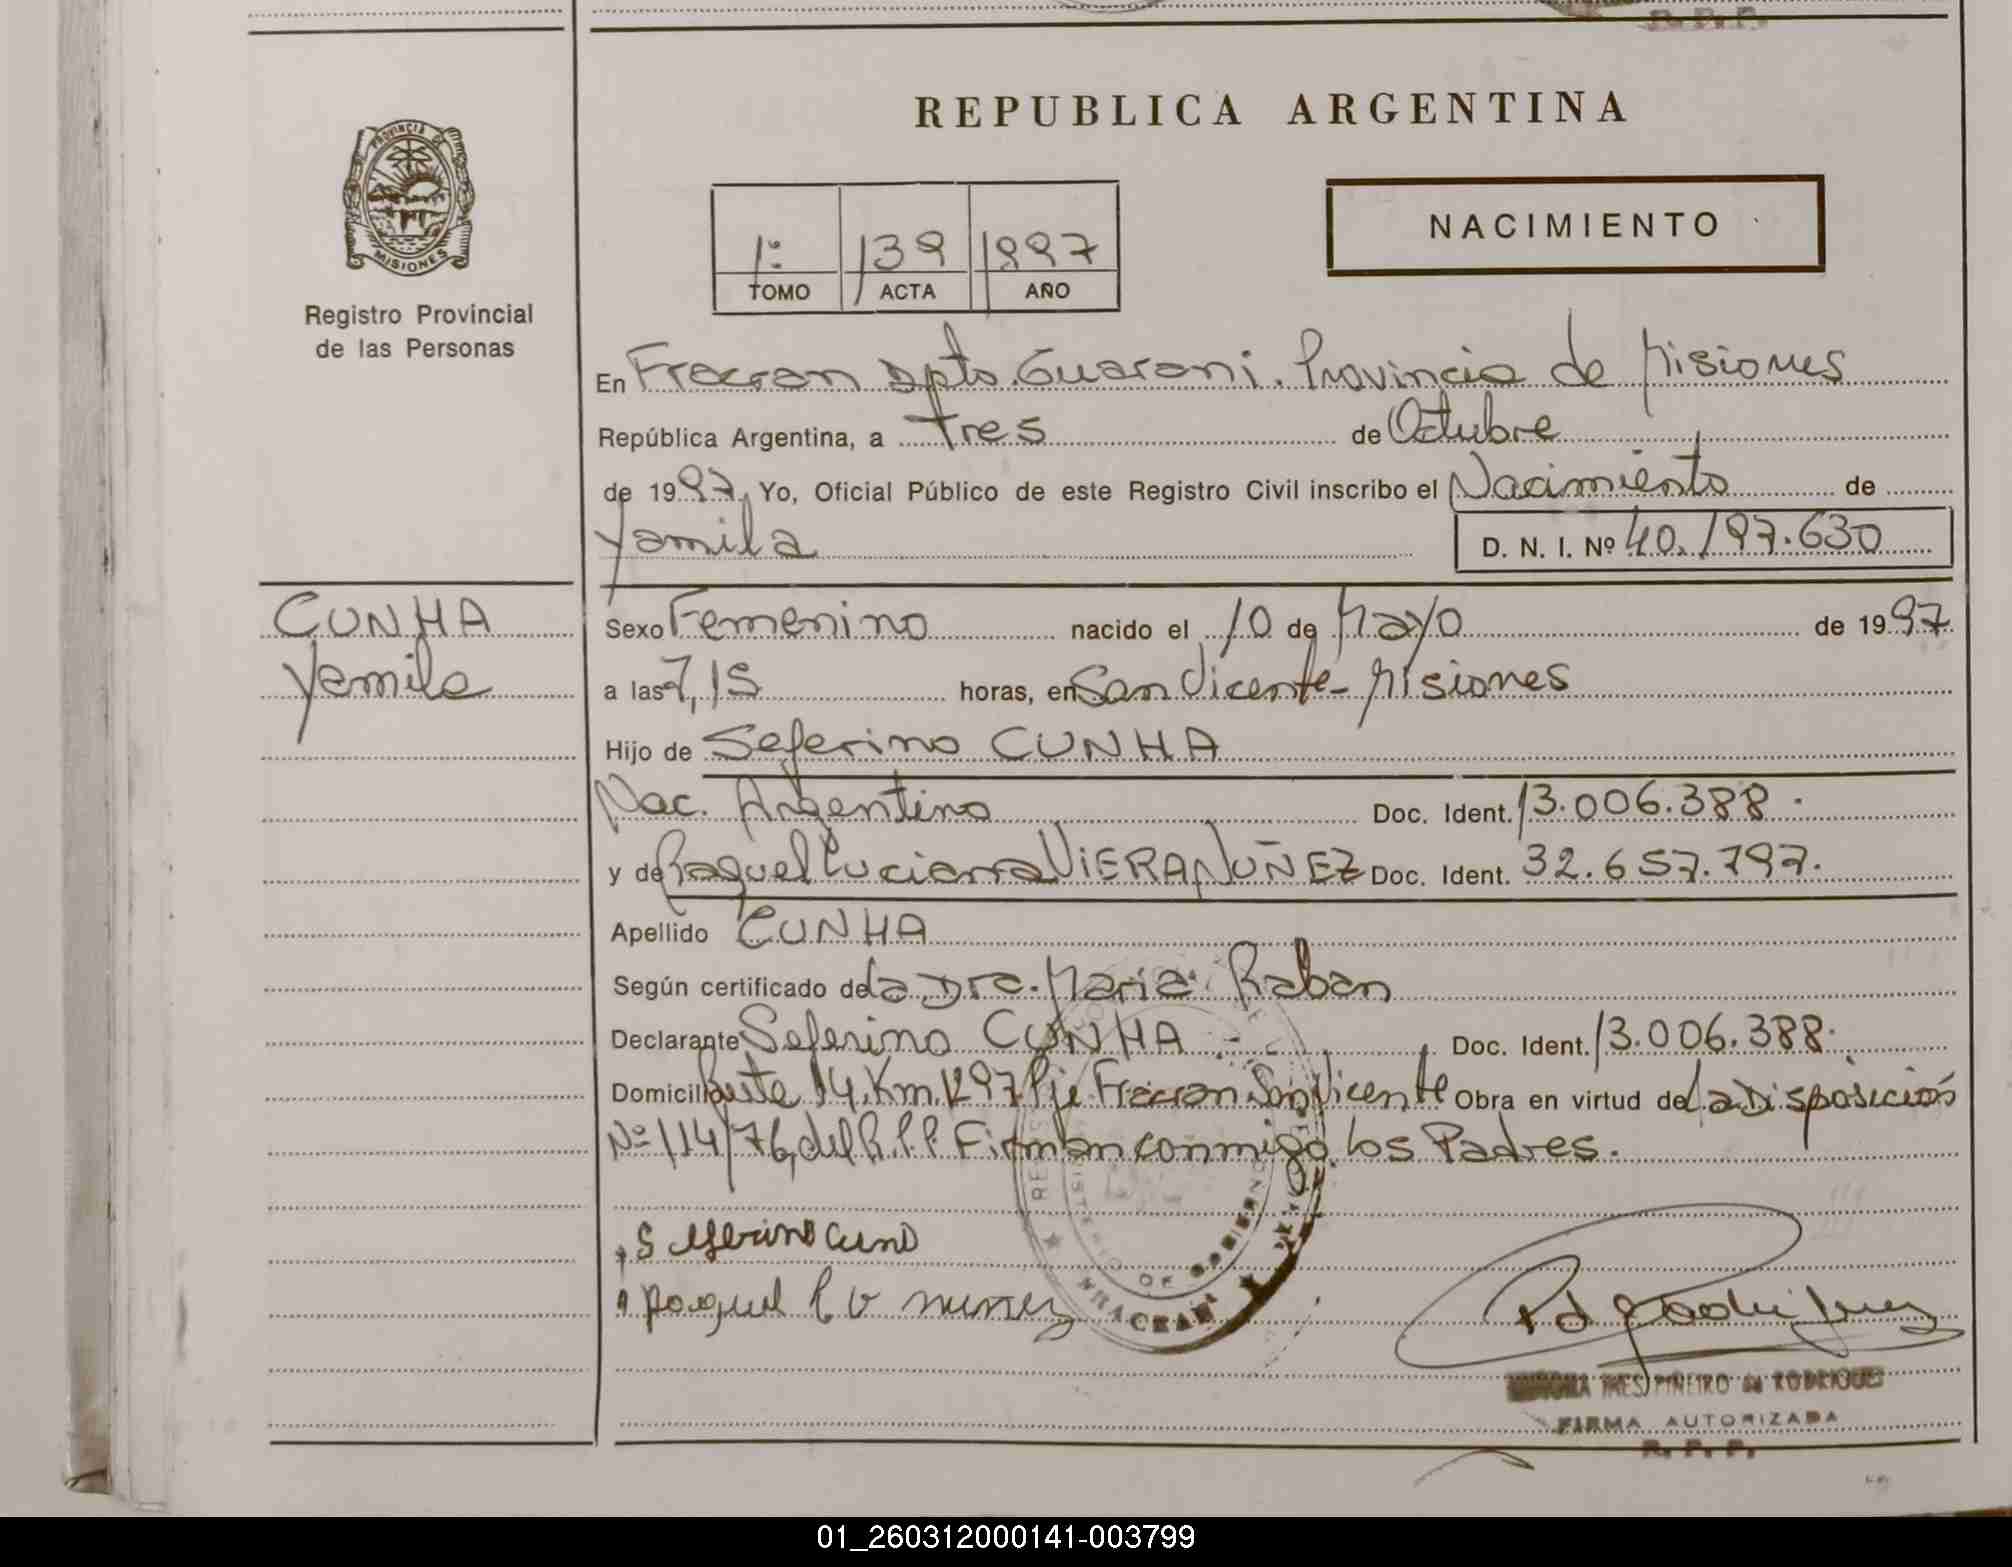 PROVINCIA DE
MISIONES
Registro Provincial
de las Personas
CUNHA
Yamila
REPUBLICA ARGENTINA
1º 139 1997
TOMO ACTA AÑO
NACIMIENTO
En Fracran Dpto. Guarani. Provincia de Misiones
República Argentina, a tres de Octubre
de 1997, Yo, Oficial Público de este Registro Civil inscribo el Nacimiento de
Yamila D. N. I. Nº 40.197.630
Sexo Femenino nacido el 10 de Mayo de 1997
a las 7,15 horas, en San Vicente - Misiones
Hijo de Seferino CUNHA
Nac. Argentino Doc. Ident. 13.006.388.
y de Raquel Luciana VIERA NUÑEZ Doc. Ident. 32.657.797.
Apellido CUNHA
Según certificado de la Dra. Maria Raban
Declarante Seferino CUNHA - Doc. Ident. 13.006.388.
Domicilio Ruta 14. Km. 1297 Pje. Fracran San Vicente Obra en virtud de La Disposición
Nº 114/76, del R.P.P. Firman conmigo los Padres.
MINISTERIO DE GOBIERNO
FRACRAN
INES PIÑEIRO de RODRIGUEZ
FIRMA AUTORIZADA
R. P. P.
01_260312000141-003799